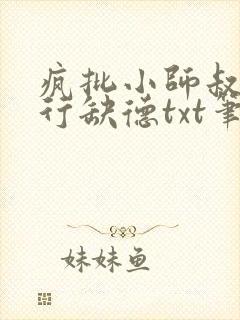 疯批小師叔
行缺德txt筆
妹妹鱼